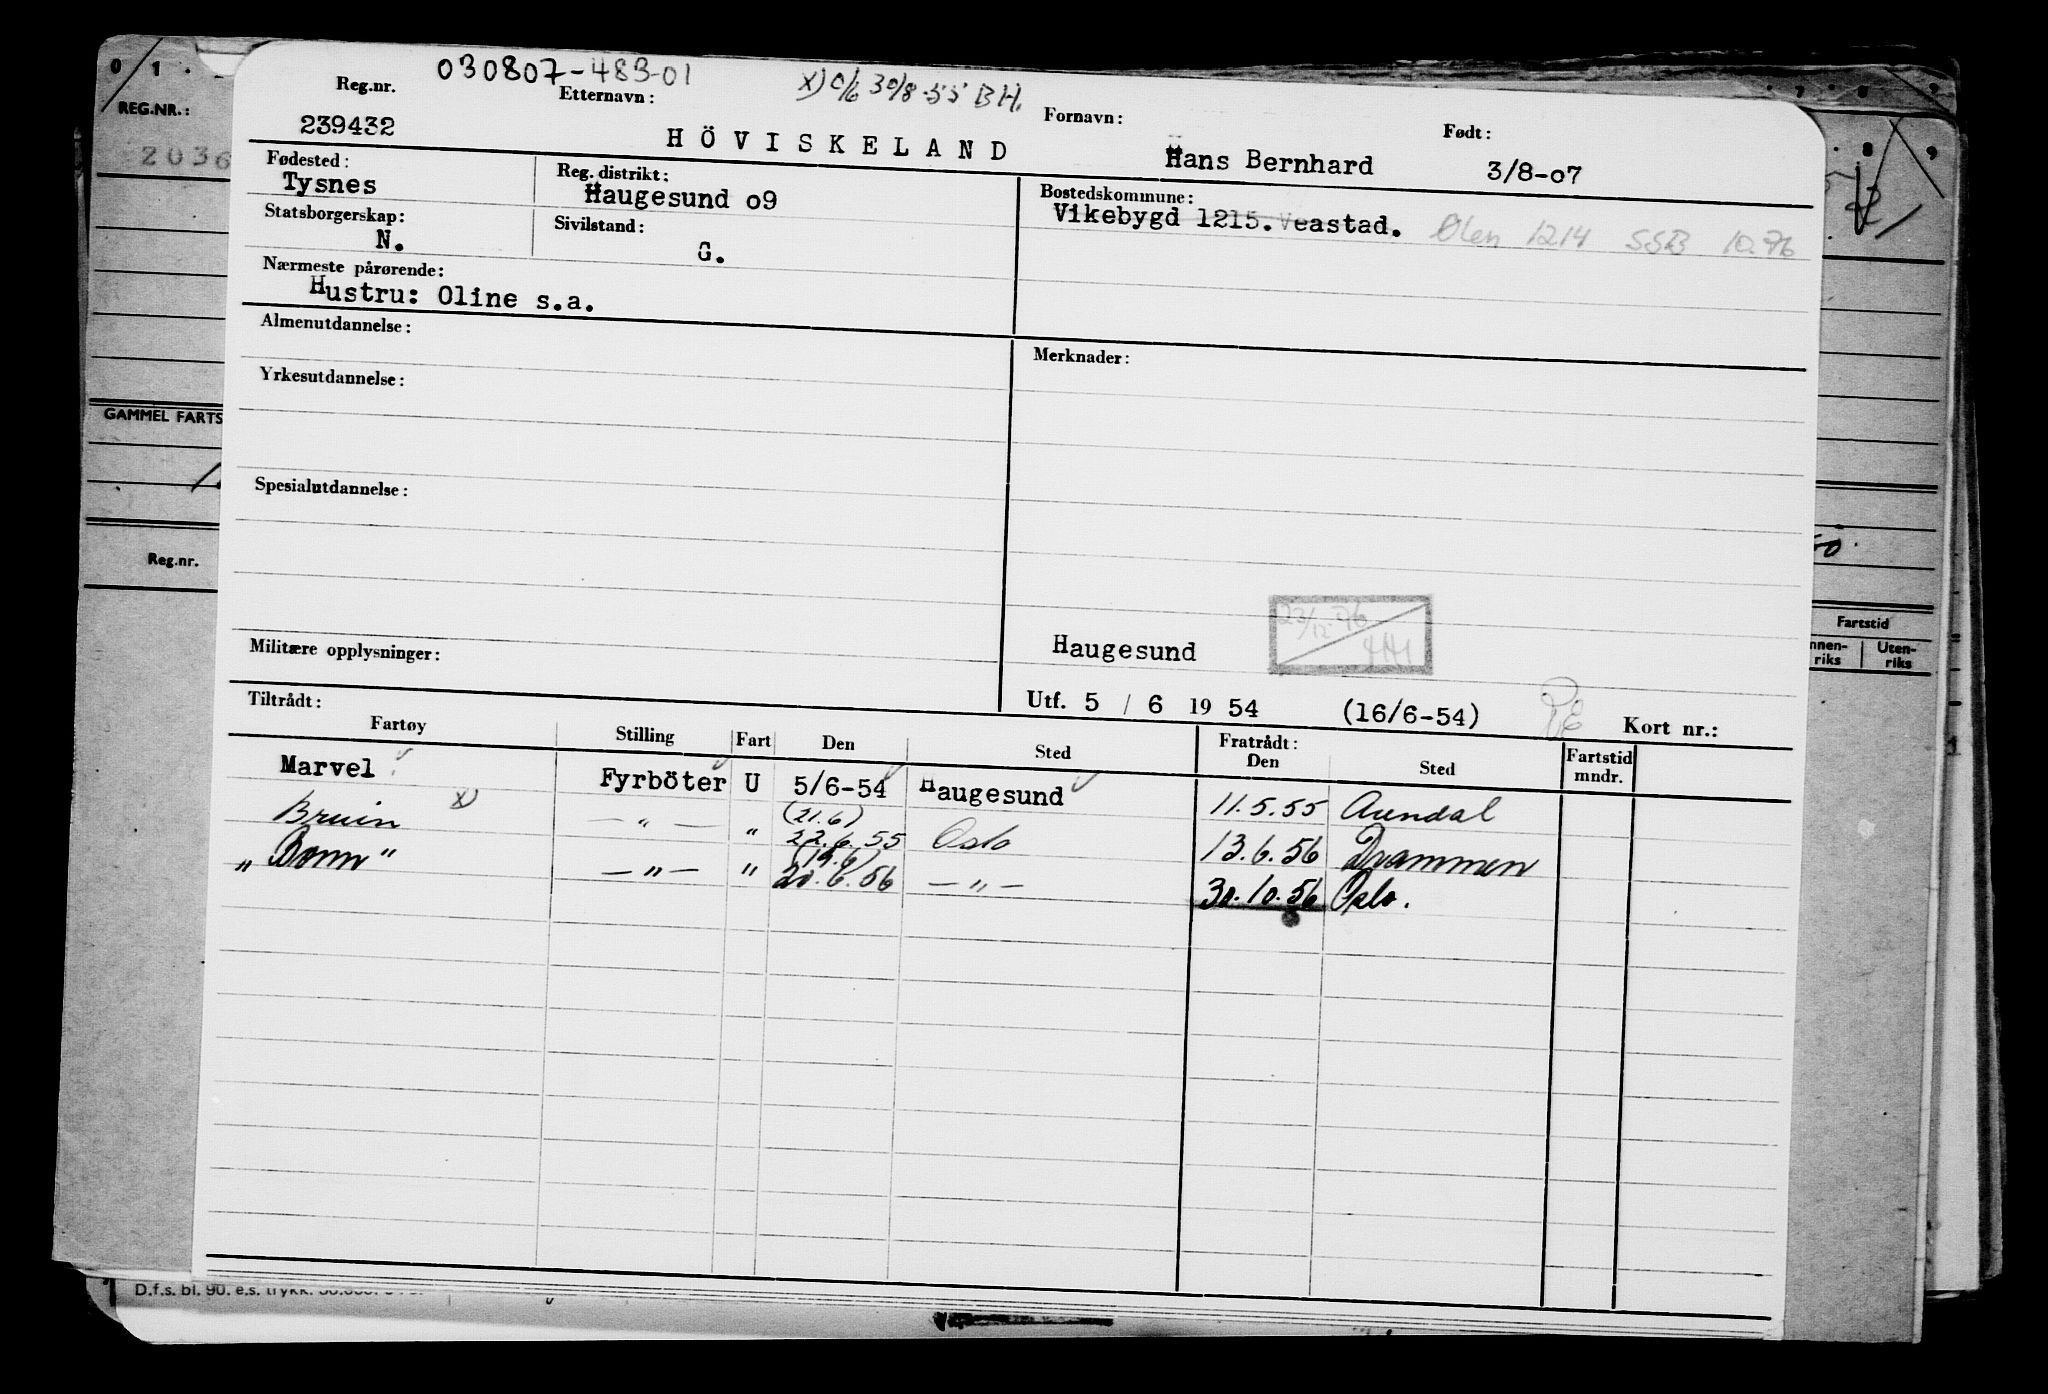 030807-483-01
X) 30/8-55 BH.
Reg.nr. Etternavn: Fornavn: Født:
239432 HÖVISKELAND Hans Bernhard 3/8-07
Fødested: Reg. distrikt: Bostedskommune:
Tysnes Haugesund 09 Vikebygd 1215. Veastad. Ølen 1214 SSB 10.76
Statsborgerskap: Sivilstand:
N. G.
Nærmeste pårørende:
Hustru: Oline s.a.
Almenutdannelse: Merknader:
Yrkesutdannelse:
Spesialutdannelse:
23/12-76
Militære opplysninger: Haugesund
Utf. 5 / 6 19 54 (16/6-54) Kort nr.:
Tiltrådt: Fratrådt:
Fartøy Stilling Fart Den Sted Den Sted Fartstid mndr.
Marvel Fyrböter U 5/6-54 Haugesund 11.5.55 Arendal
Bruin X) — " — " (21.6) 22.6.55 Oslo 13.6.56 Drammen
„ Bonn " — " — " (19.6) 20.6.56 — " — 30.10.56 Oslo.
REG.NR.:
2036
GAMMEL FARTS
Reg.nr.
Fartstid
nnen-riks Uten-riks
D.f.s. bl. 90. e.s. trykk.